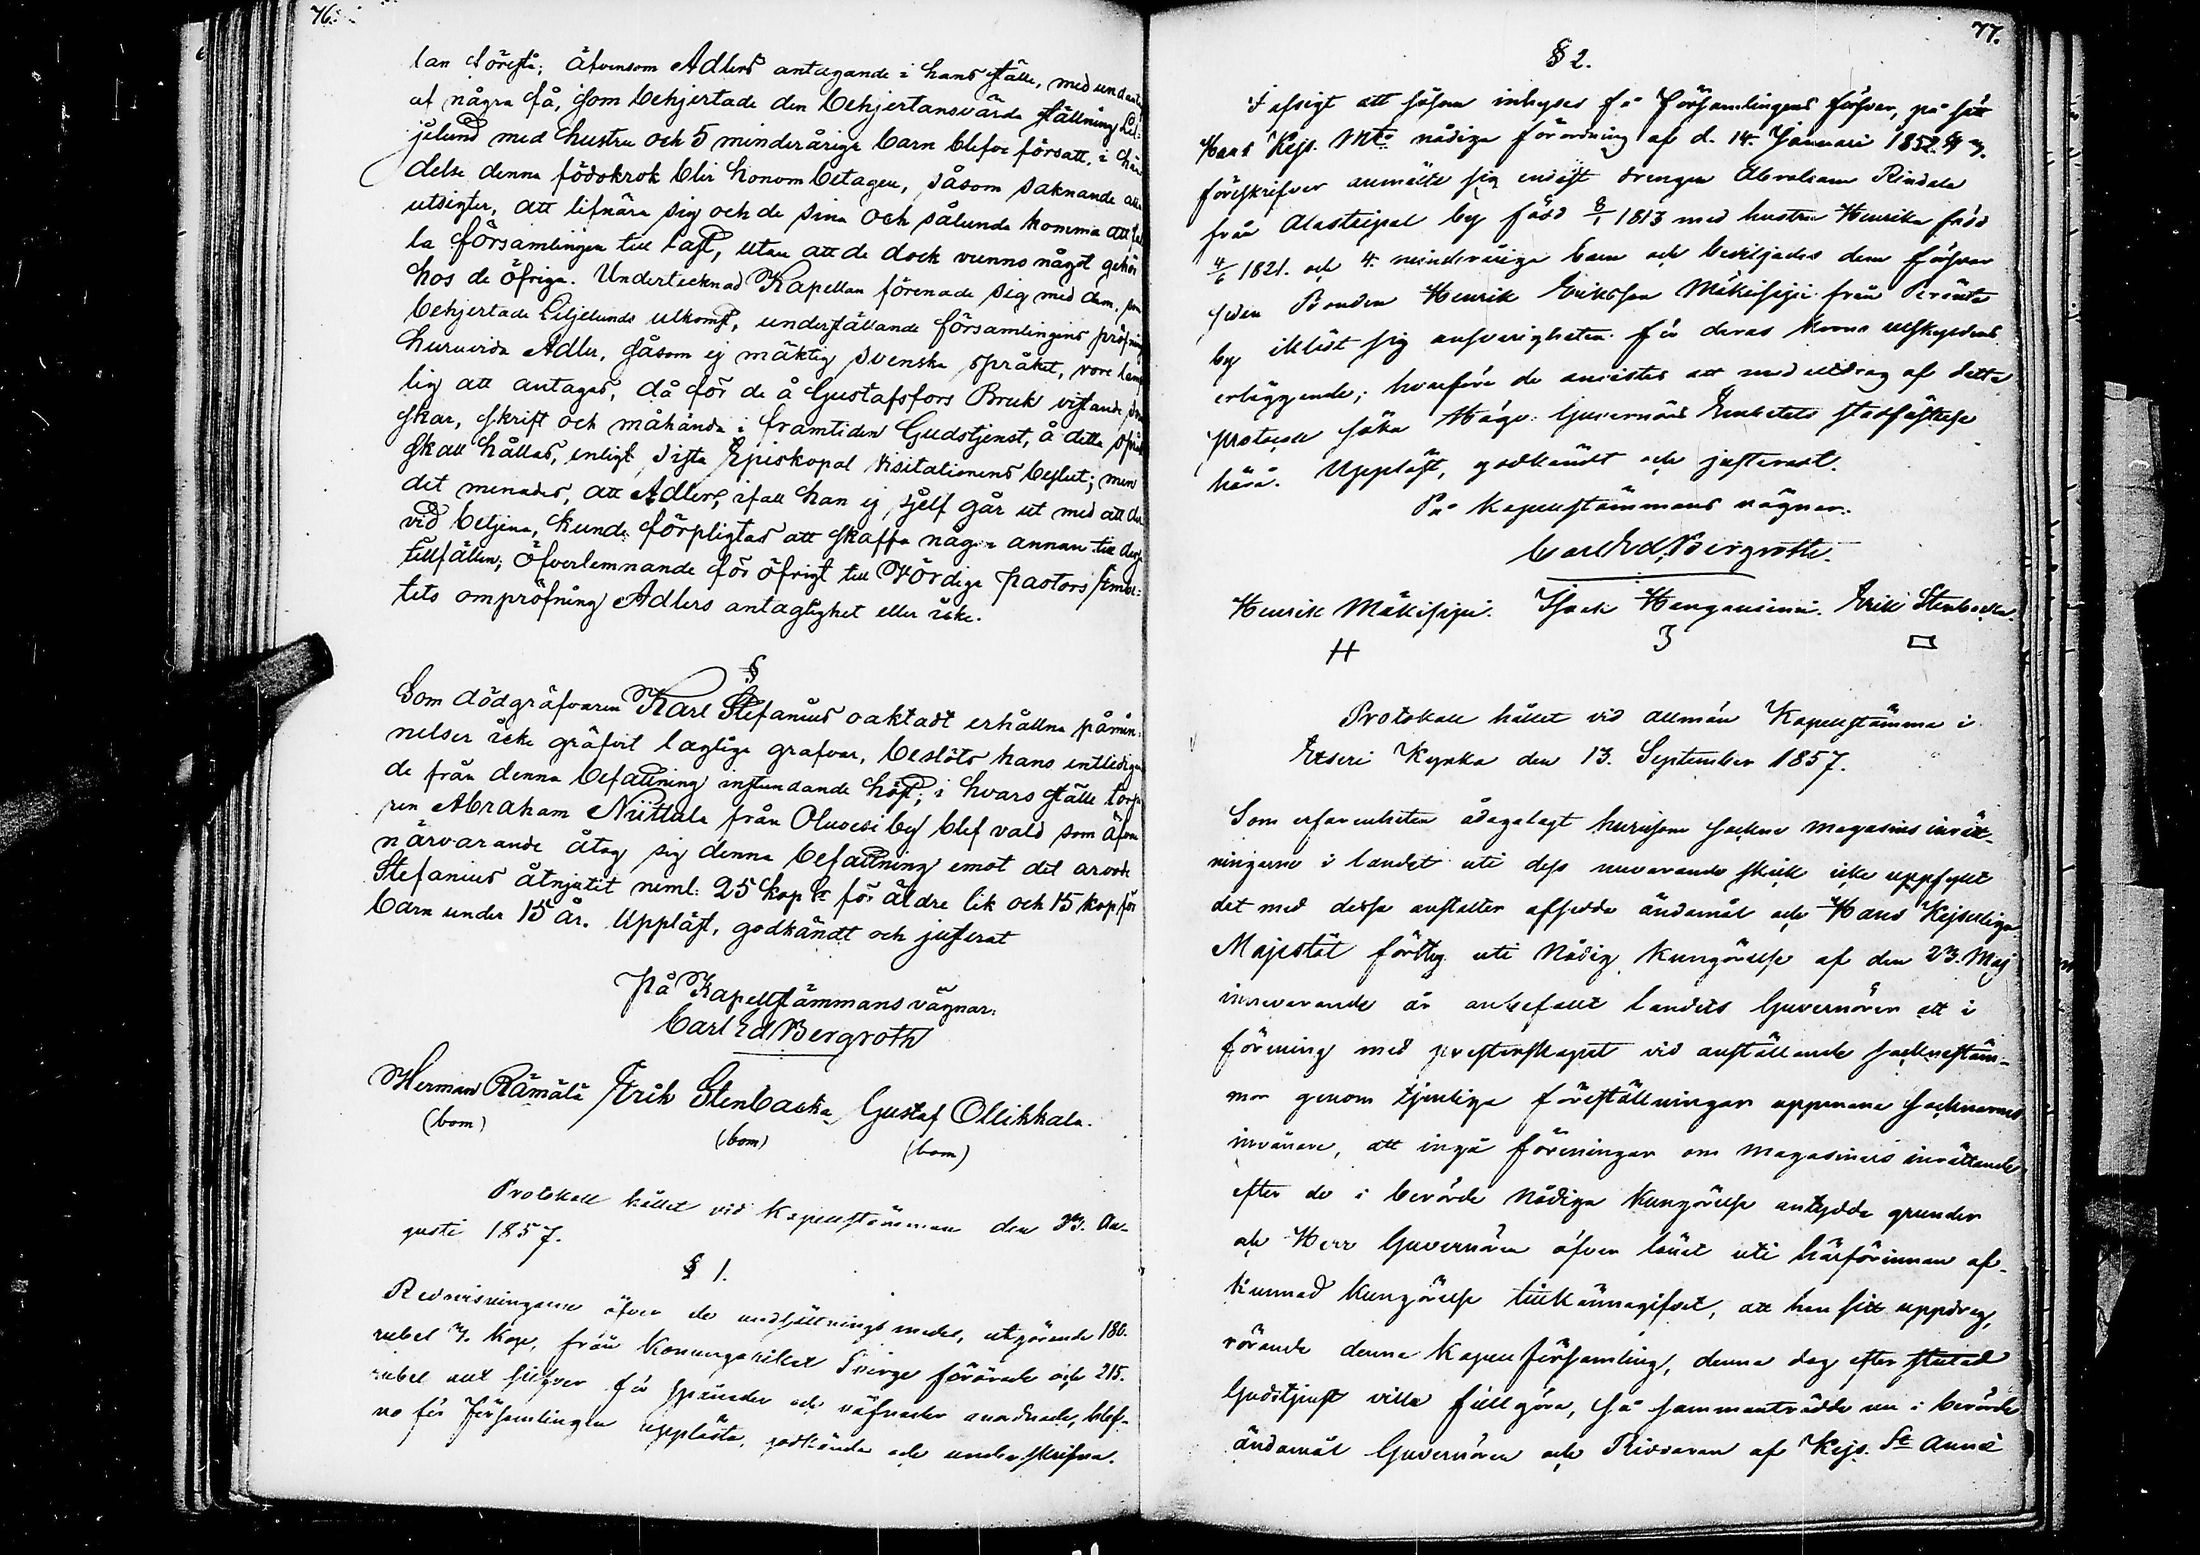 76.
lan förestå; äfvensom Adlers antagande i hans ställe, med undantag
af några få, som behjertade den behjertansvärda ställning Lil-
jelund med hustru och 5 minderåriga barn blefve försatt, i hän
delse denna födokrok blir honom betagen, såsom saknande alla
utsigter, att lifnära sig och de sina och sålunda komma att fal
la församlingen till last, utan att de dock vunno något gehör
hos de öfriga. Undertecknad Kapellan förenade sig med dem, som
behjertade Liljelunds utkomst, underställande församlingens pröfning
huruvida Adler, såsom ej mäktig svenska språket, vore lämp
lig att antagas, då för de å Gustafsfors Bruk vistande sven
skar, skrift och måhända i framtiden Gudstjenst, å detta språk
skall hållas, enligt sista Episkopal Visitationens beslut; men
det menades, att Adler, ifall han ej sjelf går ut med att der
vid betjena, kunde förpligtas att skaffa någon annan till dess
tillfällen; öfverlemnande för öfrigt till Vördige Pastors Embe-
tets ompröfning Adlers antaglighet eller icke.
§
Som dödgräfvaren Karl Stefanius oaktadt erhållna påmin-
nelser icke gräfvit lagliga grafvar, beslöts hans entledigan
de från denna befattning instundande höst; i hvars ställe torpa
ren Abraham Niittula från Oluvesi by blef vald som äfven
närvarande åtog sig denna befattning emot det arvode
Stefanius åtnjutit neml: 25 kop sr för äldre lik och 15 kop för
barn under 15 år. Uppläst, godkändt och justerat
På Kapellstämmans vägnar:
Carl Ed Bergroth
Herman Rämälä Erik Stenbacka Gustaf Ollikkala.
(bom) (bom) (bom)
Protokoll hållet vid Kapellstämman den 23. Au-
gusti 1857.
§ 1.
Redovisningarne öfver de undsättnings medel, utgörande 180.
rubel 7. kop, från Konungariket Sverge förärade och 215.
rubel silfver för spånader och väfnader anordnade, blef-
vo för Församlingen upplästa, godkända och underskrifna.
77.
§ 2.
I afsigt att såsom inhyses få Församlingens försvar, på sätt
Hans Kejs. Mts nådiga förordning af d. 14. Januari 1852 § 7.
föreskrifver anmälte sig endast drengen Abraham Rindala
från Alastaipal by född 8/1 1813 med hustru Henrika född
4/6 1821. och 4. minderåriga barn och beviljades dem försvar
sedan Bonden Henrik Eriksson Mäkisipi från Peränte
by iklädt sig ansvarigheten för deras krono utskylders
erläggande; hvarföre de anvistes att med utdrag af detta
protocoll söka Höga Guvernörs Embetets stadfästelse
härå. Uppläst, godkändt och justerat.
På Kapellstämmans vägnar.
Carl Ed. Bergroth.
Henrik Mäkisipi. Isack Hangasniemi. Erik Stenbacka.
Protokoll hållet vid allmän Kapellstämma i
Etseri Kyrka den 13. September 1857.
Som erfarenheten ådagalagt hurusom sockne magasins inrätt-
ningarne i landet uti dess nuvarande skick icke uppfyllt
det med dessa anstalter afsedda ändamål och Hans Kejserliga
Majestät förty uti Nådig Kungörelse af den 23. Maj
innevarande år anbefallt landets Guvernörer att i
förening med presterskapet vid anställande sockenstäm-
mor genom tjenliga föreställningar uppmana socknarnes
invånare, att ingå föreningar om magasiners inrättande
efter de i berörde Nådiga Kungörelse antydda grunder
och Herr Guvernören öfver länet uti härförinnan af-
kunnad Kungörelse tillkännagifvet, att han sitt uppdrag,
rörande denna Kapell församling, denna dag efter slutad
Gudstjenst ville fullgöra, så sammanträdde nu i berörde
ändamål Guvernören och Riddaren af Kejs. St Annæ